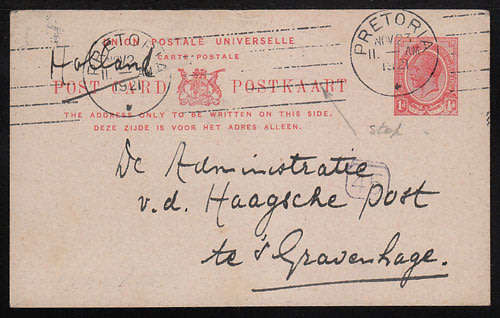 UNION POSTALE UNIVERSELLE
CARTE POSTALE
Holland
PRETORIA
11
1921
PRETORIA
NOV 23
11 AM
POST CARD POSTKAART
THE ADDRESS ONLY TO BE WRITTEN ON THIS SIDE.
DEZE ZIJDE IS VOOR HET ADRES ALLEEN.
De Administratie
v.d. Haagsche Post
te 's Gravenhage.